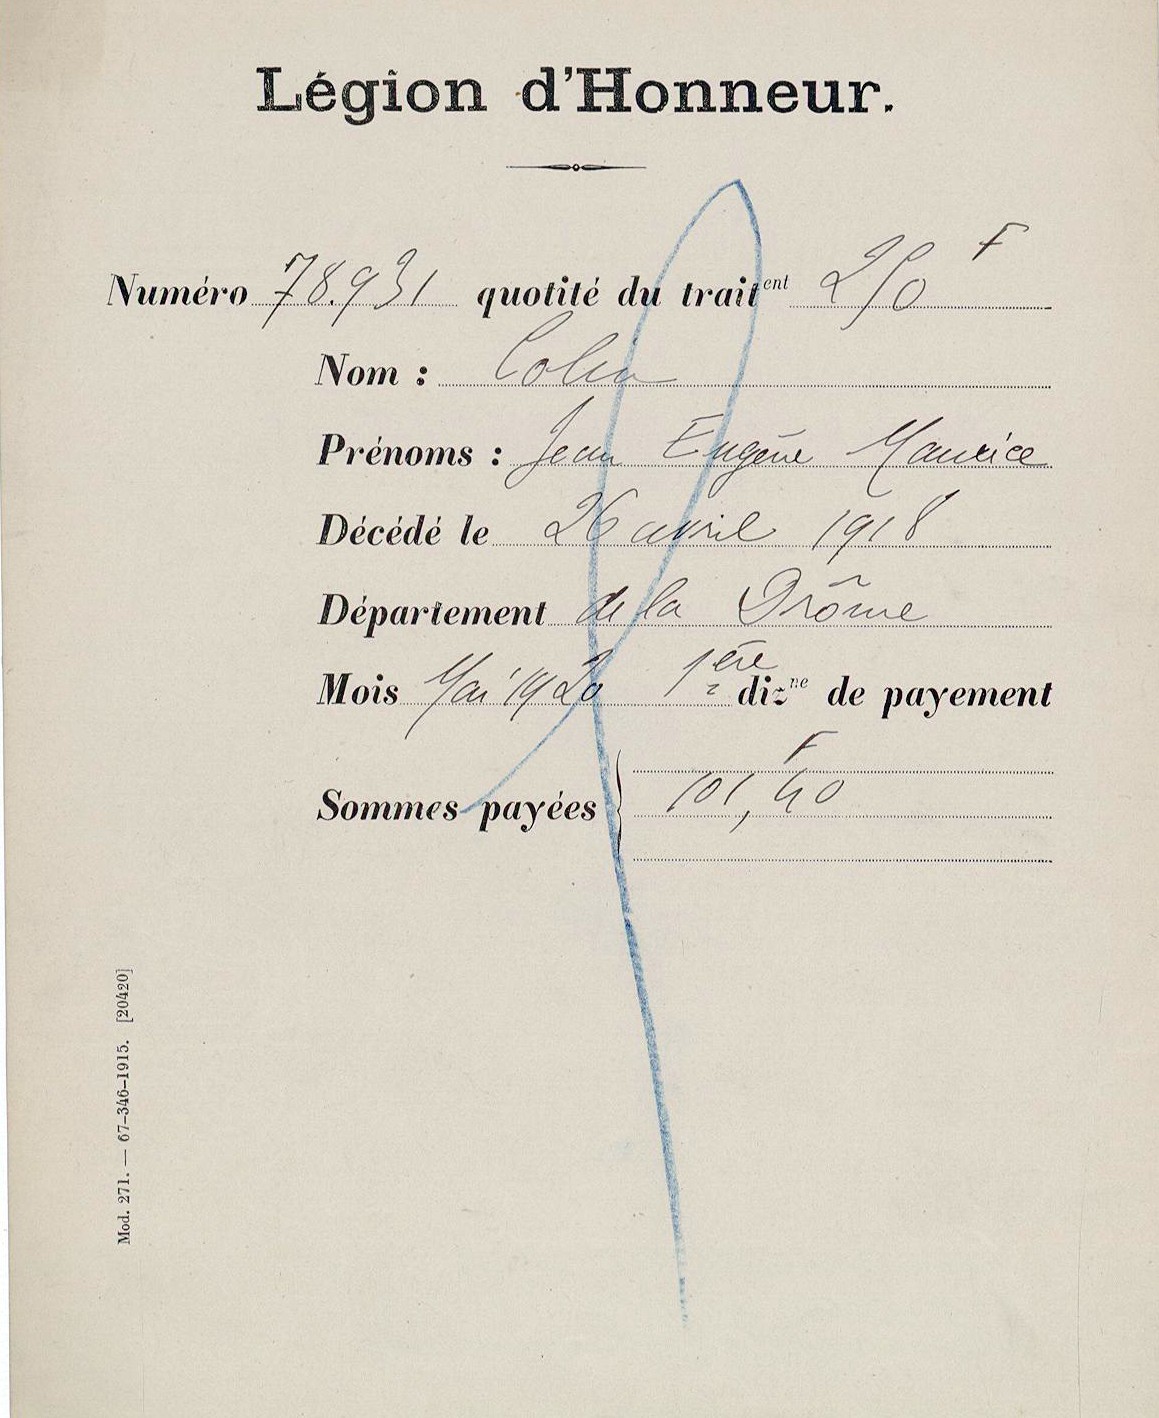 Légion d'Honneur.
Numéro 78.931 quotité du traitent 250 F
Nom : Colin
Prénoms : Jean Eugène Maurice
Décédé le 26 avril 1918
Département de la Drôme
Mois Mai 1920 1ère dizne de payement
Sommes payées 101,40 F
Mod. 271. — 67-346-1915. [20420]